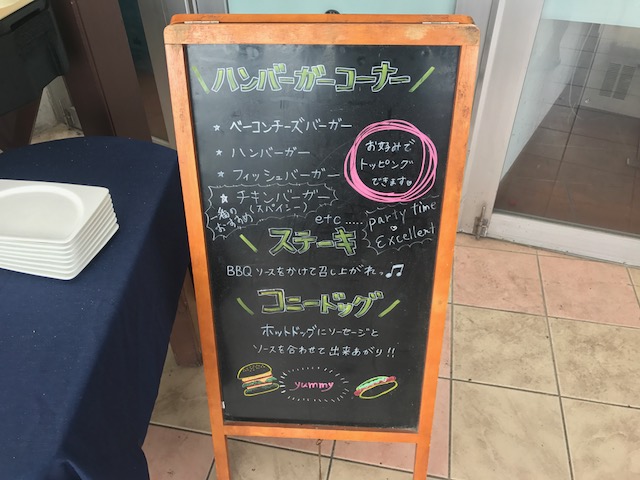 ハンバーガーコーナー
★ ベーコンチーズバーガー
★ ハンバーガー
★ フィッシュバーガー
★ チキンバーガー
(スパイシー)
おすすめ
etc.....
お好みで
トッピング
できます。
party time
Excellent
ステーキ
BBQ ソースをかけて召し上がれっ♫
コニードッグ
ホットドッグにソーセージと
ソースを合わせて出来あがり!!
yummy